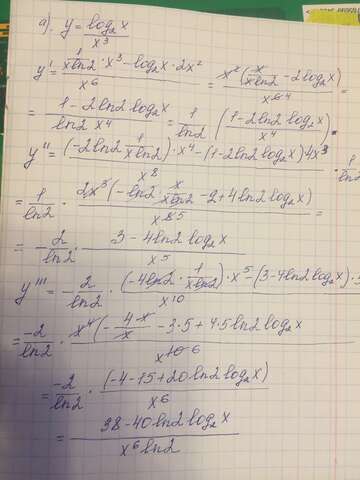 а). y = log₂x / x³
y' = (1/(x ln2) · x³ - log₂x · 2x²) / x⁶ = x²(x/(x ln2) - 2log₂x) / x⁶ ⁴ =
= (1 - 2ln2 log₂x) / (ln2 x⁴) = 1/ln2 · ((1 - 2ln2 log₂x) / x⁴)
y'' = ((-2ln2 · 1/(x ln2)) · x⁴ - (1 - 2ln2 log₂x) 4x³) / x⁸ · 1/ln2
= 1/ln2 · 2x³(-ln2 · x/(x ln2) - 2 + 4ln2 log₂x) / x⁸ ⁵ =
= -2/ln2 · (3 - 4ln2 log₂x) / x⁵
y''' = -2/ln2 · ((-4ln2 · 1/(x ln2)) · x⁵ - (3 - 4ln2 log₂x) · 5 / x¹⁰
= -2/ln2 · x⁴(-4x/x - 3·5 + 4·5 ln2 log₂x) / x¹⁰ ⁶
= -2/ln2 · (-4 - 15 + 20 ln2 log₂x) / x⁶
= (38 - 40 ln2 log₂x) / (x⁶ ln2)